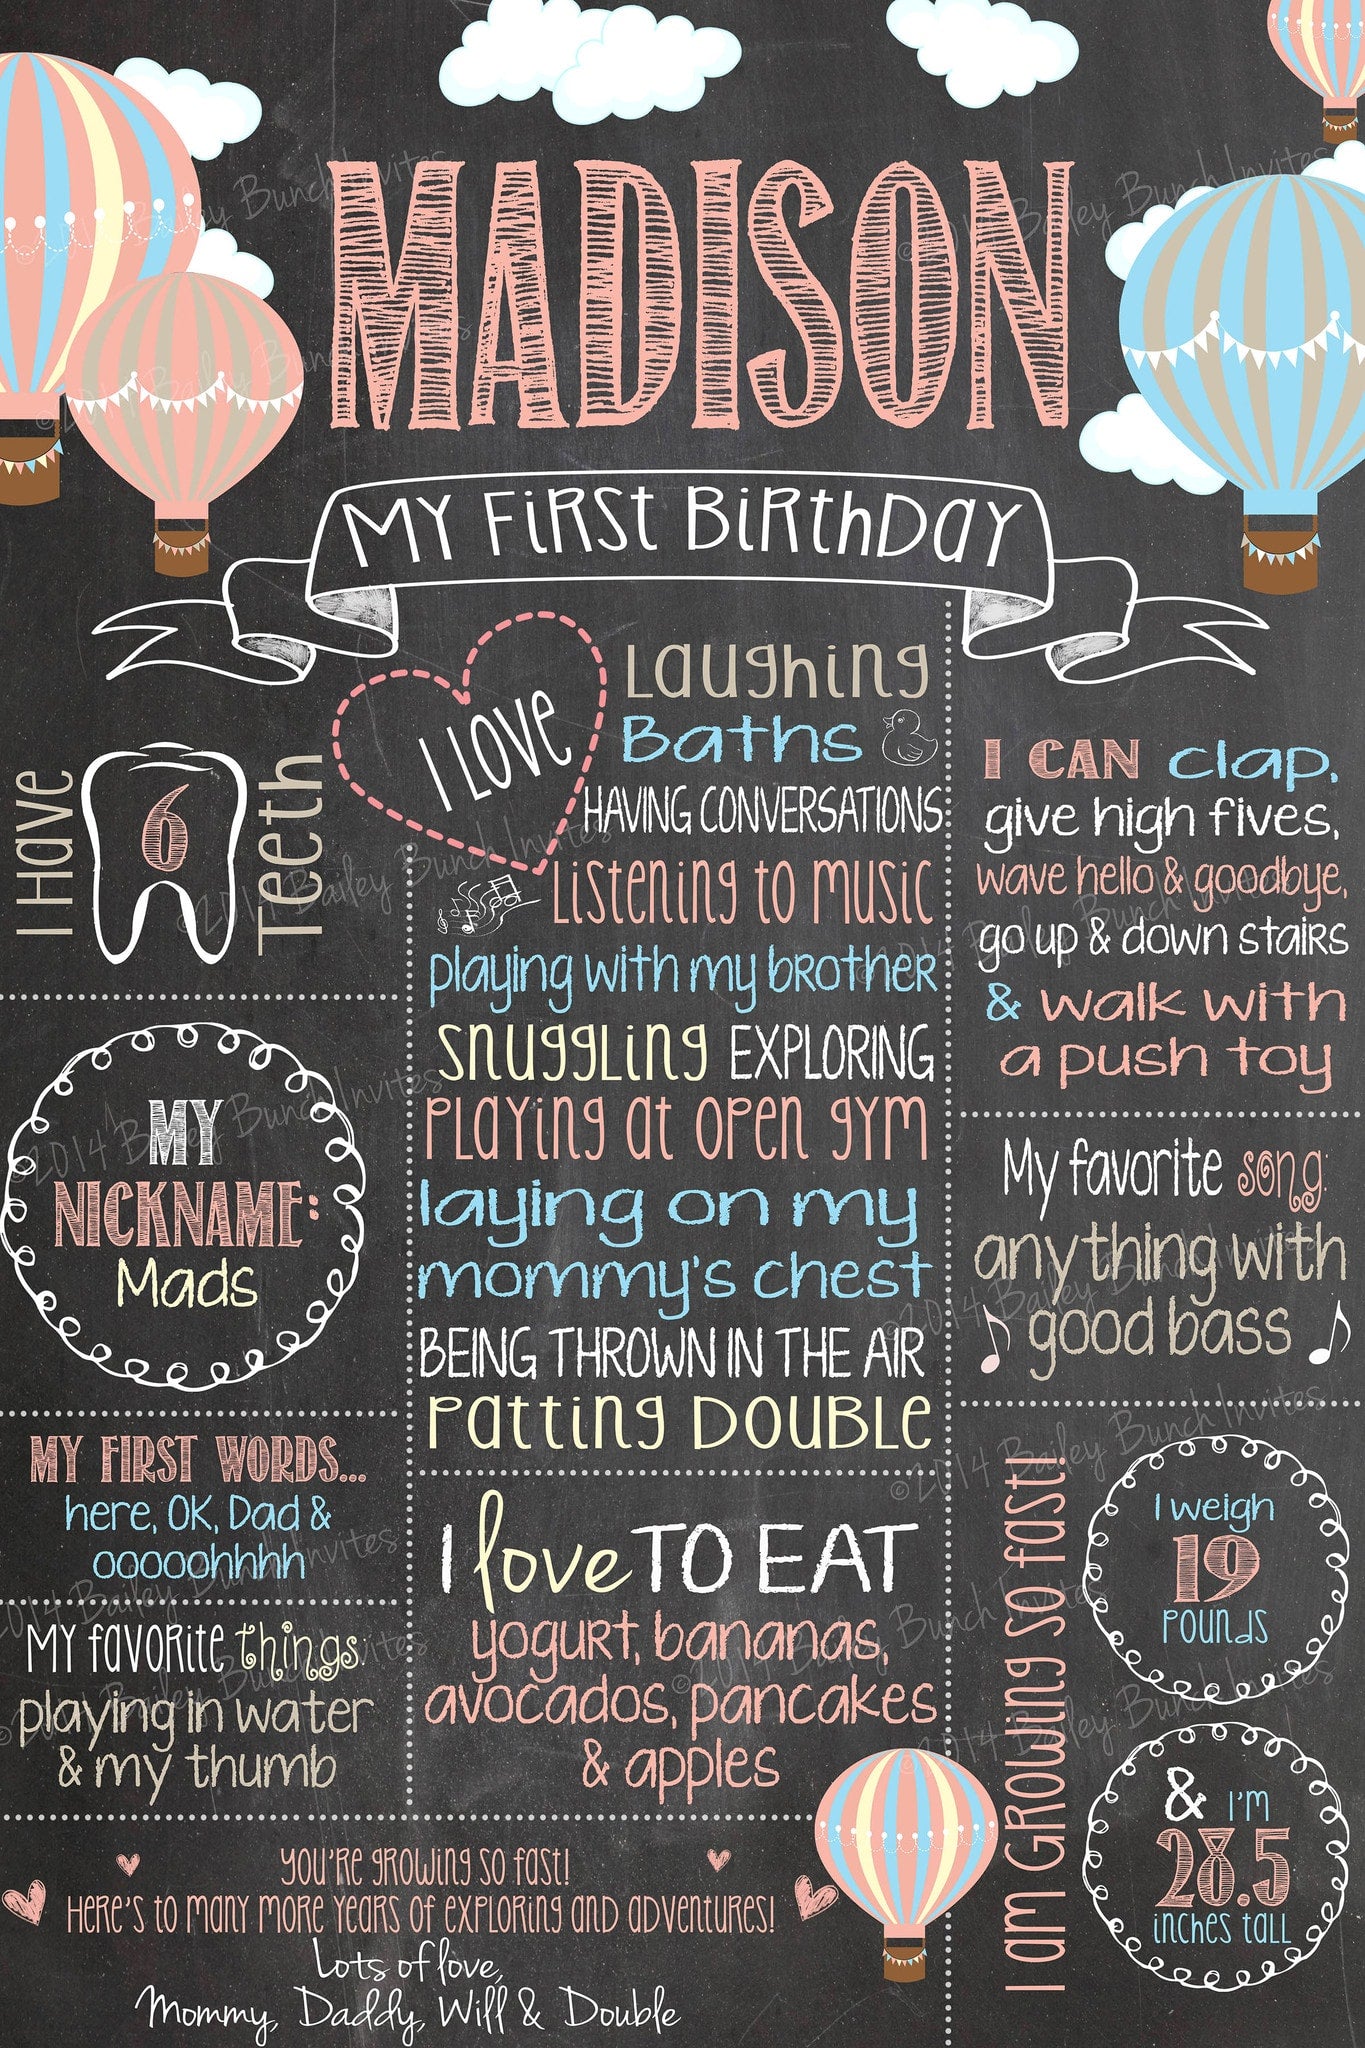 MADISON
MY FIRST BIRTHDAY
I Have
6
Teeth
MY
NICKNAME:
Mads
MY FIRST WORDS...
here, OK, Dad &
ooooohhhh
MY FAVORITE things:
playing in water
& my thumb
I LOVE
Laughing
Baths
HAVING CONVERSATIONS
Listening to music
playing with my brother
snuggling EXPLORING
PLAYING AT OPEN GYM
laying on my
mommy's chest
BEING THROWN IN THE AIR
Patting DOUBLE
I love TO EAT
yogurt, bananas,
avocados, pancakes
& apples
I CAN clap,
give high fives,
wave hello & goodbye,
go up & down stairs
& walk with
a push toy
My favorite song:
anything with
good bass
I am GROWING SO fast!
I weigh
19
POUNDS
& I'm
28.5
inches tall
YOU'RE GROWING SO FAST!
HERE'S TO MANY MORE YEARS OF EXPLORING AND ADVENTURES!
Lots of love,
Mommy, Daddy, Will & Double
©2014 Bailey Bunch Invites